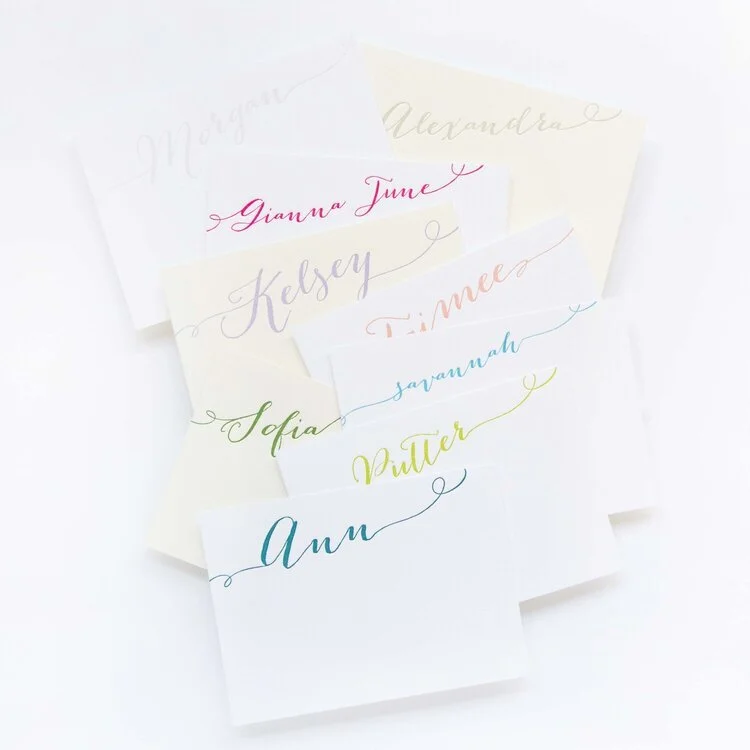 Morgan
Alexandra
Gianna June
Kelsey
savannah
Sofia
Putter
Ann